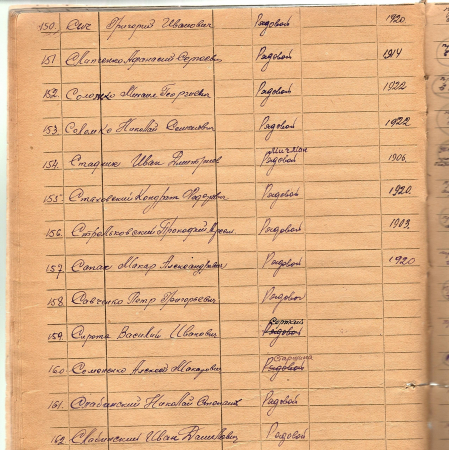 150. Сыч Григорий Иванович Рядовой 1920
151 Скипченко Афанасий Сергеевич Рядовой 1914
152. Соломко Михаил Георгиевич Рядовой 1922
153. Соломко Николай Семенович Рядовой 1922
мичман
154. Стаднік Иван Дмитриев Рядовой 1906
155. Стаховский Кондрат Федорович Рядовой 1920
156. Стрельховский Прокофий Рядовой 1903
157. Сапач Макар Александрович Рядовой 1920
158. Савченко Петр Григорьевич Рядовой
159. Сирота Василий Иванович Рядовой
старшина
160 Семененко Алексей Макарович Рядовой
161. Слабинский Николай Степан Рядовой
162 Слабинский Иван Данилович Рядовой